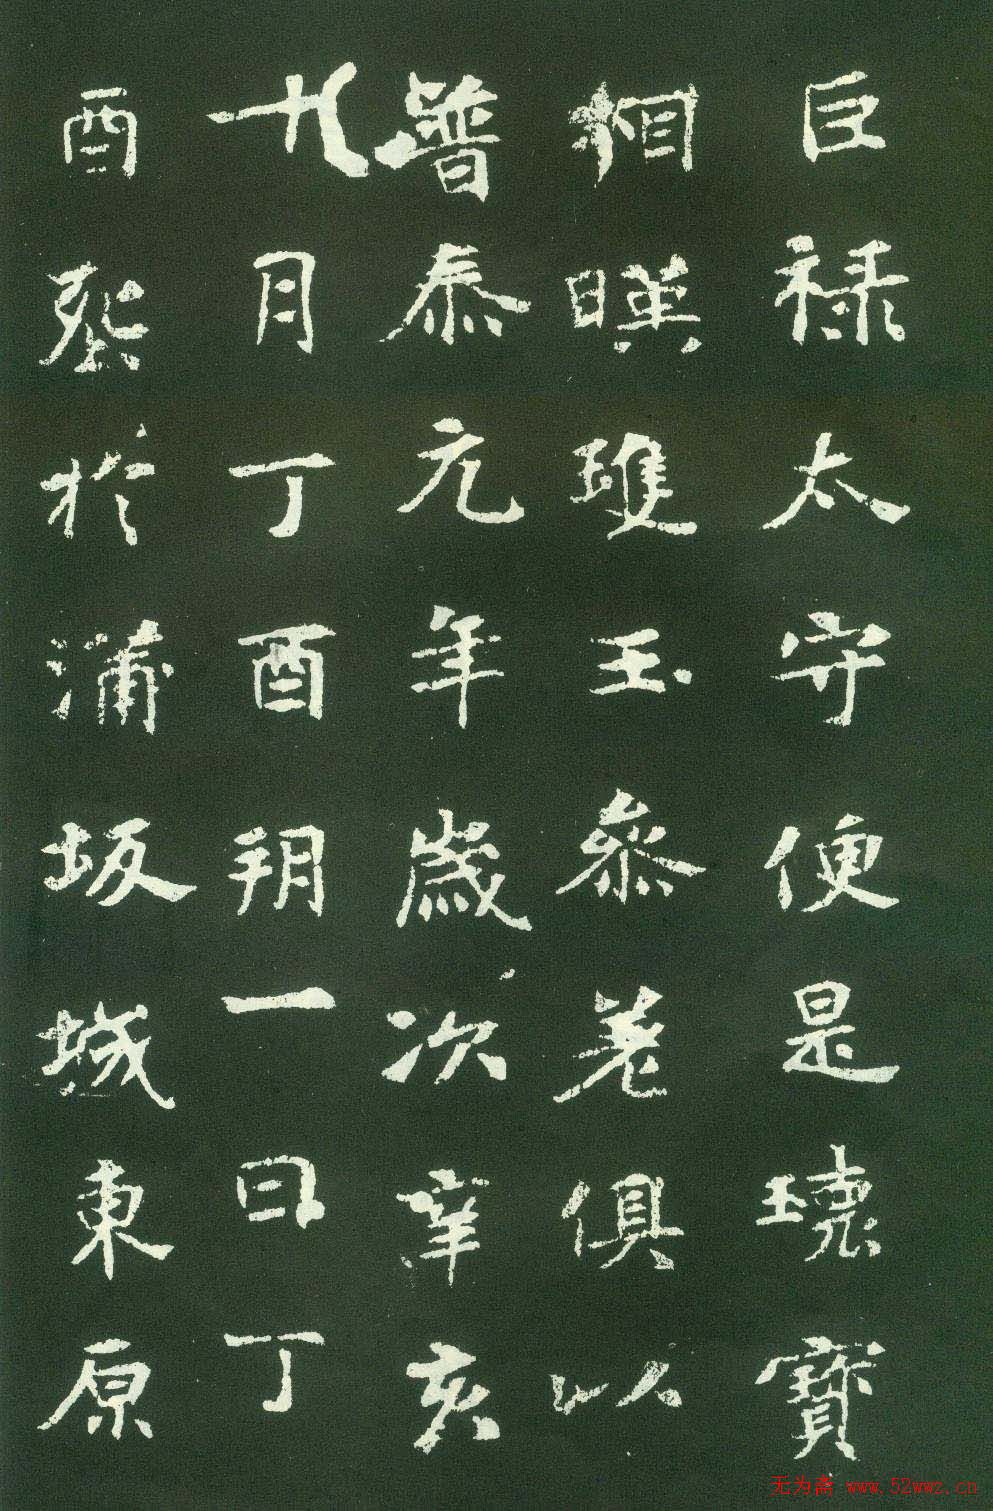 巨祿太守便是瓌寶
相暎雙玉叅差俱以
普泰元年歳次辛亥
十月丁酉朔一日丁
酉塟於蒲坂城東原
无为斋 www.52wwz.cn